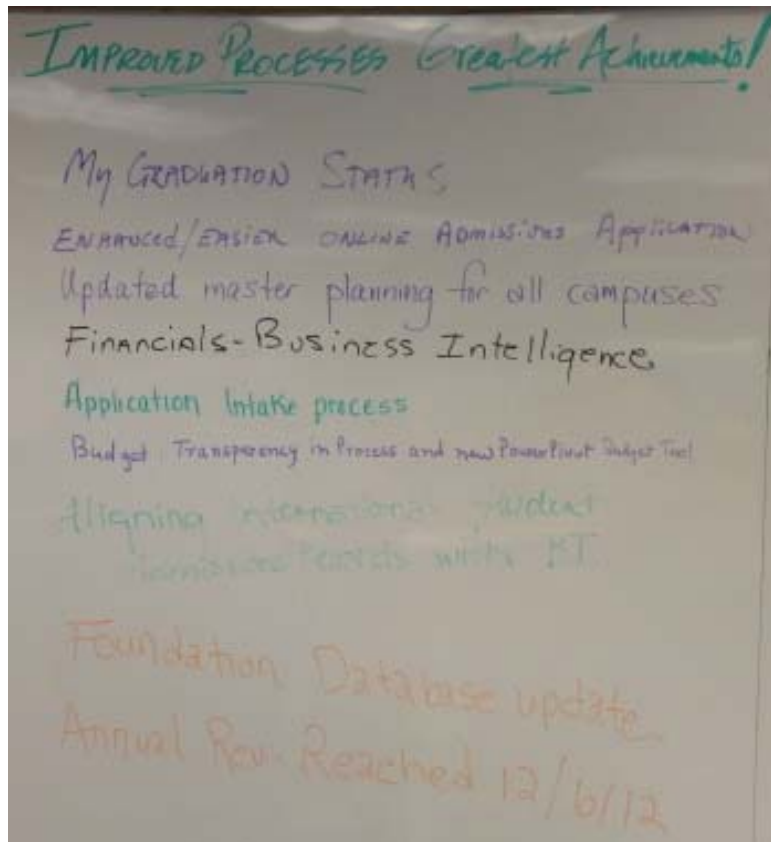 IMPROVED PROCESSES Greatest Achievements!
My GRADUATION STATUS
ENHANCED/EASIER ONLINE ADMISSIONS APPLICATION
Updated master planning for all campuses
Financials-Business Intelligence
Application Intake process
Budget Transparency in Process and new PowerPivot Budget Tool
Aligning International Student
Admissions Records with
Foundation Database update
Annual Rev. Reached 12/6/12